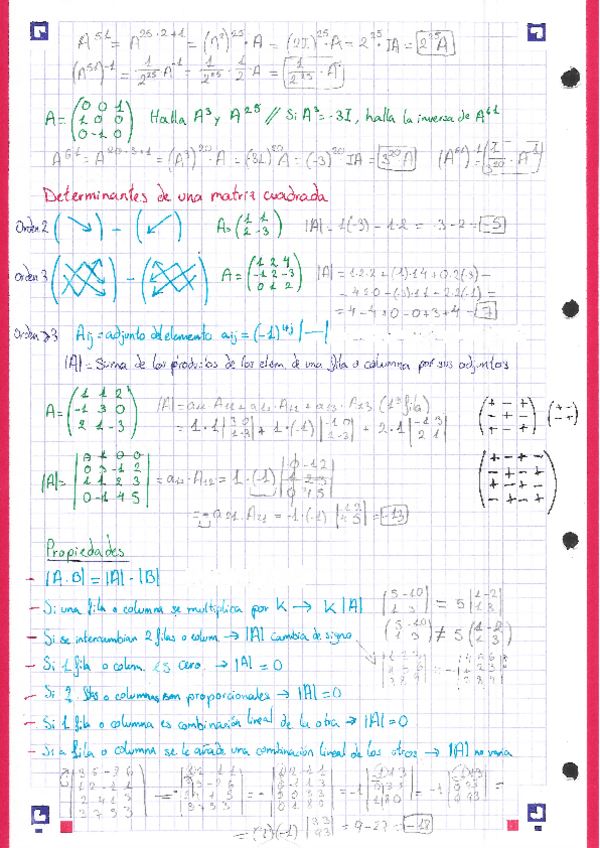 A⁵¹ = A²⁵·²⁺¹ = (A²)²⁵ · A = (2I)²⁵ · A = 2²⁵ · IA = 2²⁵A
(A⁵¹)⁻¹ = 1/2²⁵ · A⁻¹ = 1/2²⁵ · 1/2 A =
A = (0 0 1
1 0 0
0 -1 0) Halla A³ y A²⁵ // Si A³ = -3I, halla la inversa de A⁶¹
A⁶¹ = A²⁰·³⁺¹ = (A³)²⁰ A = (-3I)²⁰ A = (-3)²⁰ IA = 3²⁰A (A⁶¹)⁻¹ = 1/3²⁰ · A⁻¹
Determinantes de una matriz cuadrada
Orden 2 ( ) - ( ) A = (1 1
2 -3) |A| = 1(-3) - 1·2 = -3 - 2 = -5
Orden 3 ( ) - ( ) A = (1 2 4
-1 2 -3
0 1 2) |A| = 1·2·2 + (-1)·1·4 + 0·2(-3) -
- 4·2·0 - (-3)·1·1 - 2·2(-1) =
= 4 - 4 + 0 - 0 + 3 + 4 = 7
Orden ≥ 3 Aij = adjunto del elemento aij = (-1)ⁱ⁺ʲ |—|
|A| = Suma de los productos de los elem. de una fila o columna por sus adjuntos
A = (1 1 2
-1 3 0
2 1 -3) |A| = a₁₁ · A₁₁ + a₁₂ · A₁₂ + a₁₃ · A₁₃ (1ª fila)
= 1·1 |3 0
1 -3| + 1·(-1) |-1 0
2 -3| + 2·1 |-1 3
2 1|
(+ - +
- + -
+ - +) (+ -
- +)
|A| = |0 1 0 0
0 3 -1 2
1 1 2 3
0 -1 4 5| = a₁₂ · A₁₂ = 1·(-1) |0 -1 2
1 2 3
0 4 5|
= - a₂₁ · A₂₁ = -1·(-1) |-1 2
4 5| = -13
(+ - + -
- + - +
+ - + -
- + - +)
Propiedades
- |A·B| = |A|·|B|
- Si una fila o columna se multiplica por K → K |A| |5 -10
1 3| = 5 |1 -2
1 3|
- Si se intercambian 2 filas o colum. → |A| cambia de signo (5 -10
1 3) ≠ 5 (1 -2
1 3)
- Si 1 fila o colum. es cero. → |A| = 0
- Si 2 filas o columnas son proporcionales → |A| = 0
- Si 1 fila o columna es combinación lineal de la otra → |A| = 0
- Si a fila o columna se le añade una combinación lineal de las otros → |A| no varía
= 9 - 27 = -18